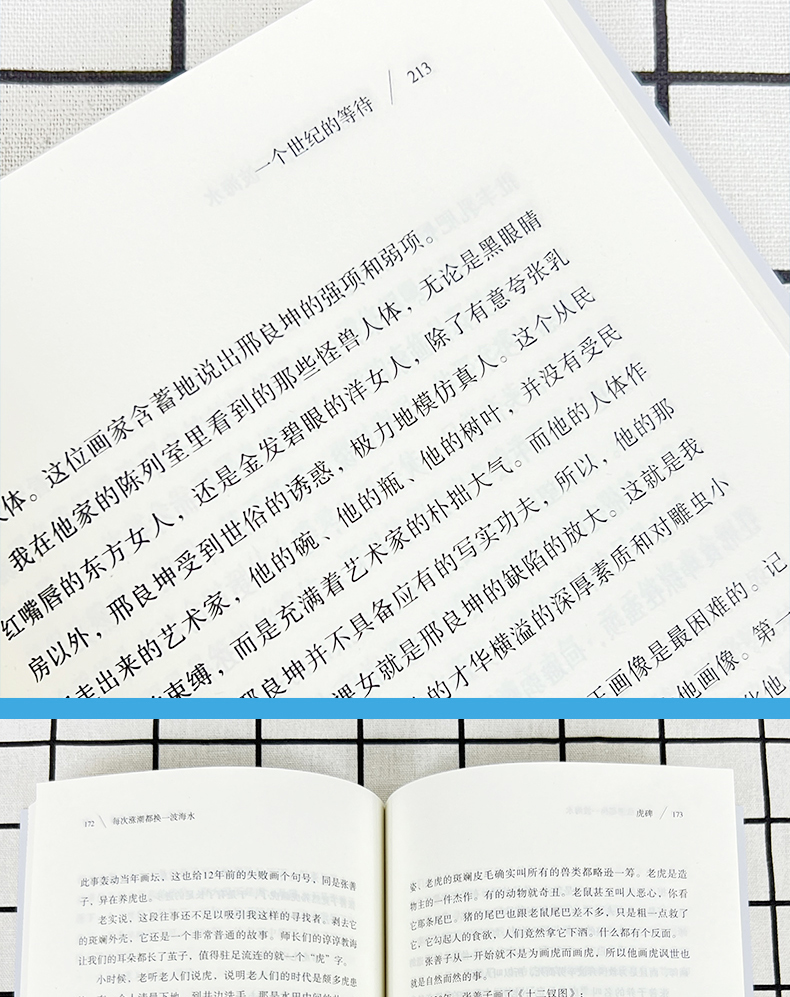 一个世纪的等待 / 213
人体。这位画家含蓄地说出邢良坤的强项和弱项。
我在他家的陈列室里看到的那些怪兽人体，无论是黑眼睛
红嘴唇的东方女人，还是金发碧眼的洋女人，除了有意夸张乳
房以外，邢良坤受到世俗的诱惑，极力地模仿真人。这个从民
走出来的艺术家，他的碗、他的瓶、他的树叶，并没有受民
束缚，而是充满着艺术家的朴拙大气。而他的人体作
邢良坤并不具备应有的写实功夫，所以，他的那
裸女就是邢良坤的缺陷的放大。这就是我
的才华横溢的深厚素质和对雕虫小
画像是最困难的。记
他画像。第一
172 \ 每次涨潮都换一波海水
此事轰动当年画坛，这也给12年前的失败画个句号，同是张善
子，异在养虎也。
老实说，这段往事还不足以吸引我这样的寻找者。剥去它
的斑斓外壳，它还是一个非常普通的故事。师长们的谆谆教诲
让我们的耳朵都长了茧子，值得驻足流连的就一个“虎”字。
小时候，老听老人们说虎，说明老人们的时代是颇多虎患
虎碑 / 173
姿。老虎的斑斓皮毛确实叫所有的兽类都略逊一筹。老虎是造
物主的一件杰作。有的动物就奇丑。老鼠甚至叫人恶心，你看
它那条尾巴。猪的尾巴也跟老鼠尾巴差不多，只是粗一点救了
它，它勾起人的食欲，人们竟然拿它下酒。什么都有个反面。
张善子从一开始就不是为画虎而画虎，所以他画虎讽世也
就是自然而然的事。
年，张善子画了《十二钗图》：